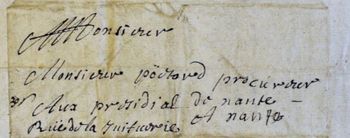 Monsieur
Monsieur poëtord procureur
Aux presidial de nante
Rüe de la Juifverie A nante